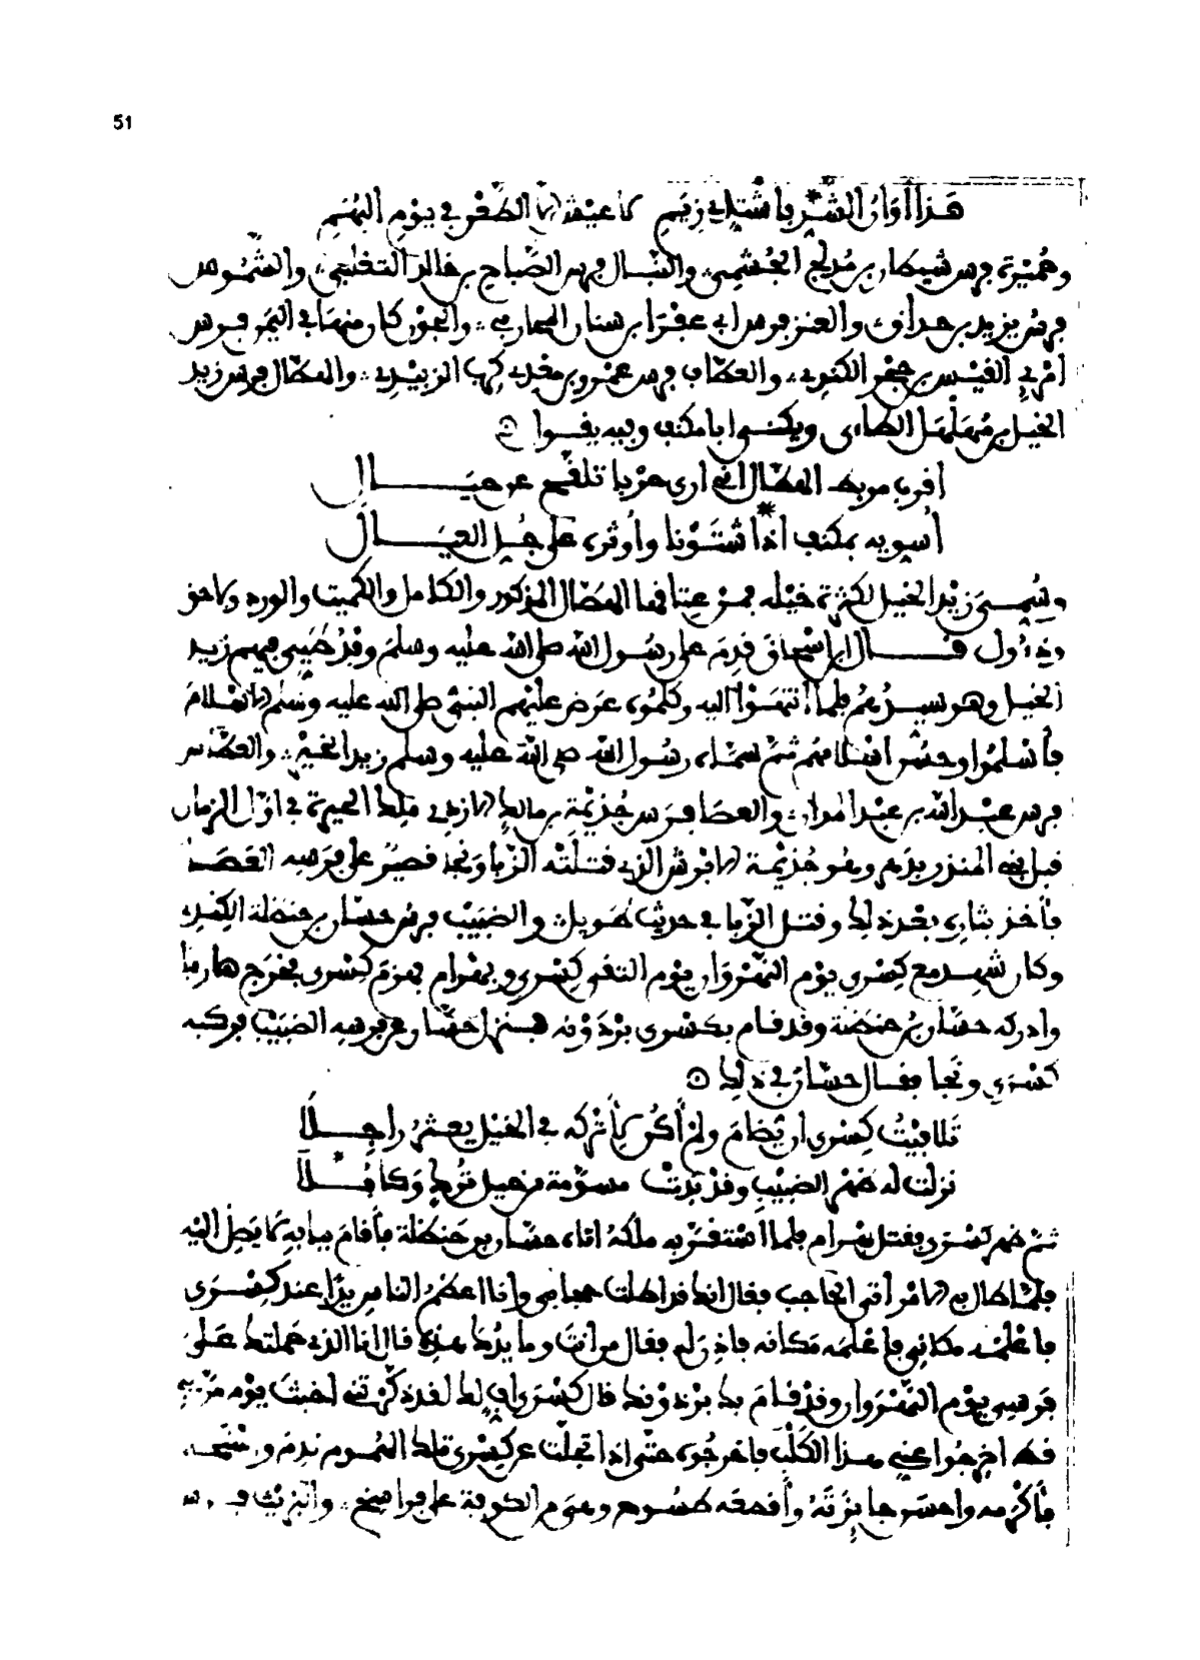 51
هَذا أوَانُ الشَّرِّ فاشْتَدِّي زِيَمْ لا عيْشَ إلا الطَّعْن في يوْمِ البُهَمْ
فرس شيطان بن مُدلج الجُشَمِي، والنبّال فرس الصَّباح بن خالد التغلبي، والشَّمُوس
فرسُ يزيد بن حذاق، والعنز فرس أبي عفْرَا بن سنان المحاربي، والجَوْن كان منها في اليَمن فرس
امْرئ القيْس بن حُجْر الكندي، والعطّاب فرس عَمْرو بن معْدي كرب الزبيْدي، والهطّال فرس زيد
الخيل بن مُهَلْهَل الطاءى ويكنى أبا مكنف وفيه يقول
أقربا مربط الهطّال إني أرى حرْبا تلقّح عن حيَال
أسويه بمكنف إذا شَتَوْنا وأوثره على جُلّ العيَال
وسُمي زيْد الخيل لكثرة خيْله فمن عتاقها الهطّال المذكور والكامل والكميت والورد ولاحق
ودؤول قال ابن إسْحاق قدِمَ على رسُول الله صلى الله عليه وسلم وفدُ طَيِّى فيهم زيد
الخيل وهو سيدُهُم فلما انتهَوْا إليه وكلمُوه عرَض عليْهم النبي صلى الله عليه وسلم الإسْلامَ
فأسْلمُوا وحسُن إسْلامُهُم ثمّ سمّاه رسُول الله صلى الله عليه وسلم زيد الخيْر، والعطّاس
فرس عبْد الله بن عبْد المدان، والعصَا فرَس جُذيْمة بن مالك الأزدي ملك الحيرة في أوّل الزمان
قبل بني المنذر بدَهر وهو جُذيْمة الأبرش الذي قتلتْه الزّبا ونجا قصيرٌ على فرَسه العَصَا
فأخذ بثاره بعْد ذلك وقتل الزّبا في حديث طَويل، والضبَيْب فرسُ حسّان بن حنظلة الكندي
وكان شهد مع كِسْرى يوْم النّهْرَوَان يوْم التقى كِسْرى وبهْرام فهزمَ كِسْرى فخرج هاربا
وأدركه حسّان بنُ حنظلة وقد قام بكسْرى برْذَوْنه فنزل حسّان عن فرسه الضبَيْب فركبه
كسْرى ونَجا فقال حسّان في ذلك
تلافيْتُ كِسْرى أن يُضامَ ولم أكُن لأتْركه في الخيْل يعثر راجلا
نزلت له ظهْر الضبيْب وقد بَدتْ مسوّمة من خيل تُرك وكابُلا
ثمّ ظهر كسْرى فقتل بهْرام فلما اسْتقرّ به ملكهُ أتاه حسّان بن حَنظلة فأقامَ ببابه لا يَصل إليْه
فلمّا طال به الأمْر أتى الحاجب فقال إنك قد أطلت حجابي وأنا أعظمُ الناس يدًا عند كِسْرَى
فأعْلمْه مكاني فأعْلمَه مَكانه فأذِن له فقال من أنتَ وما يدُك هذه قال أنا الذي حَملتك عَلى
فرسي يوْم النّهْرَوان وقد قامَ بك برْذوْنك قال كسْرى أي لك لقد ذكرْتني أخبثَ يوْم مرّ بي
قط أخرجُوا عني هذا الكَلْب فأخرجُوه حتّى إذا تجلّت عن كِسْرى تلك الهُموم ندِمَ
فأكْرمه وأحسَن جائزَتَهُ وأقطعَه طسُوجًا